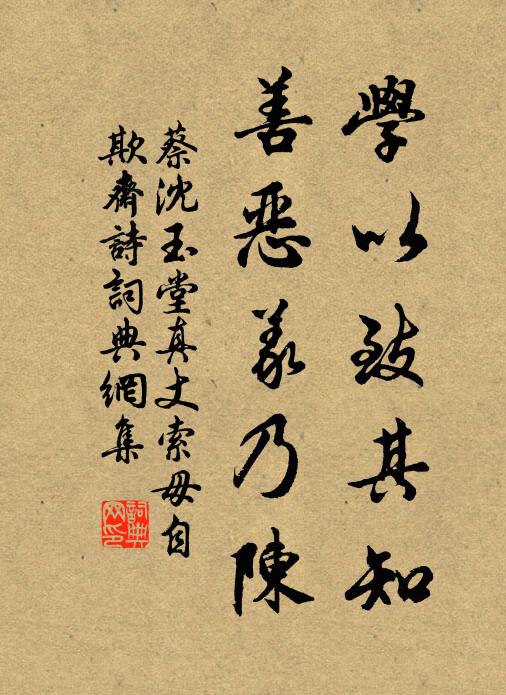 學以致其知
善惡義乃陳
蔡沈玉堂真丈索毋自
欺齋詩詞典網集
詞典
网印